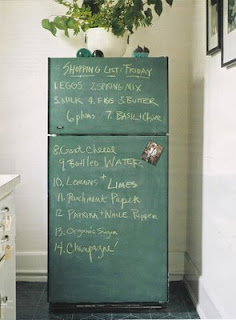 SHOPPING LIST: FRIDAY
1. EGGS 2. SPRING MIX
3. MILK 4. FIGS 5. BUTTER
6. plums 7. BASIL + Chive
8. Goat Cheese
9. Bottled WATER
10. Lemons + LIMES
11. Parchment Paper
12 PAPRIKA + White Pepper
13. Organic Sugar
14. Champagne!